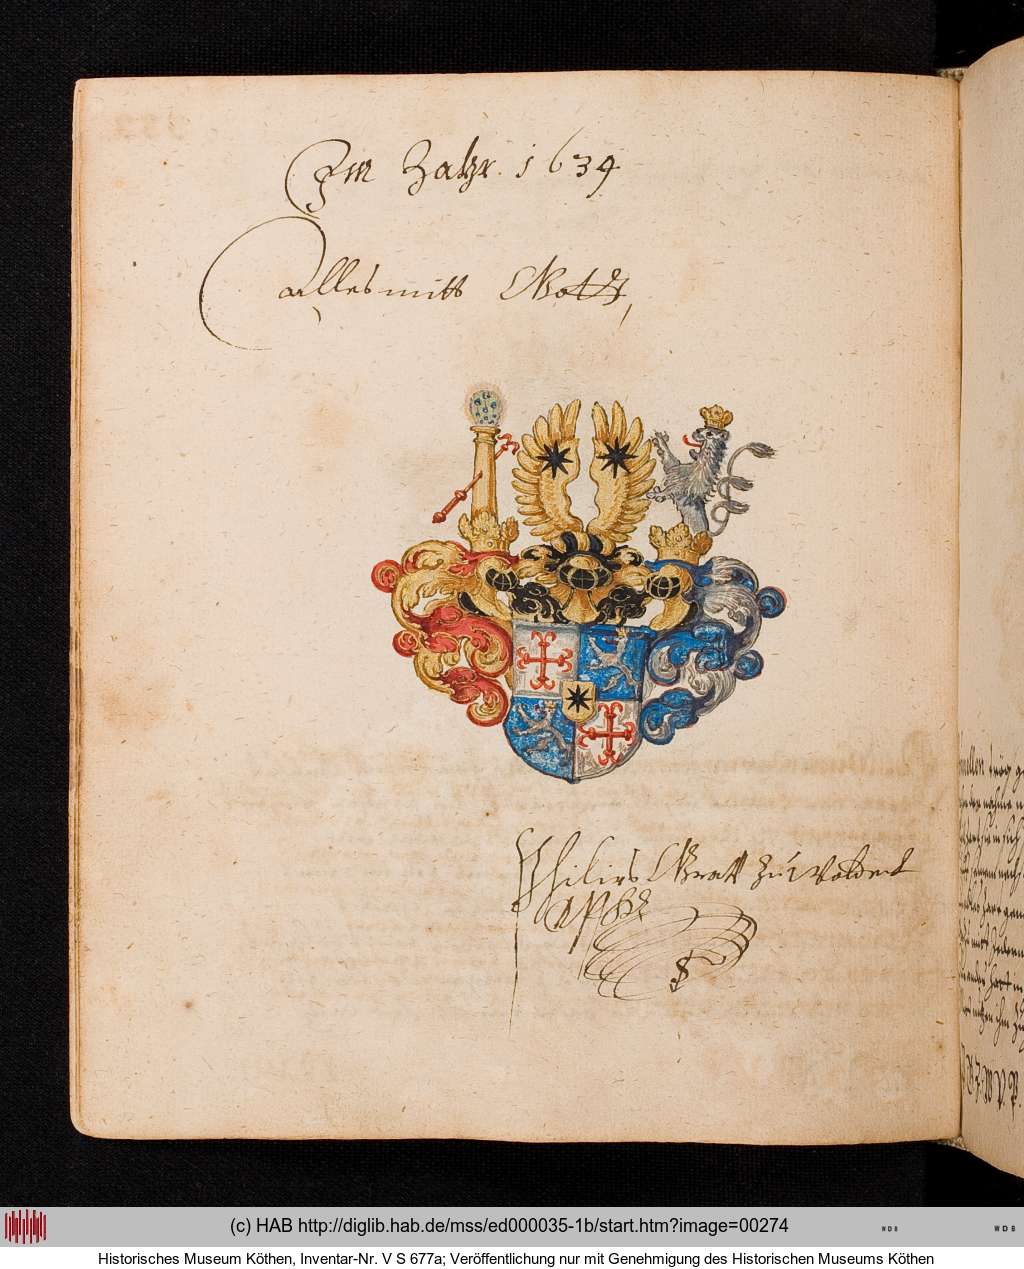 Im Jahr. 1634
alles mitt Gott,
Philips Graff zu Waldeck
mpp
(c) HAB http://diglib.hab.de/mss/ed000035-1b/start.htm?image=00274
WDB
WDB
Historisches Museum Köthen, Inventar-Nr. V S 677a; Veröffentlichung nur mit Genehmigung des Historischen Museums Köthen